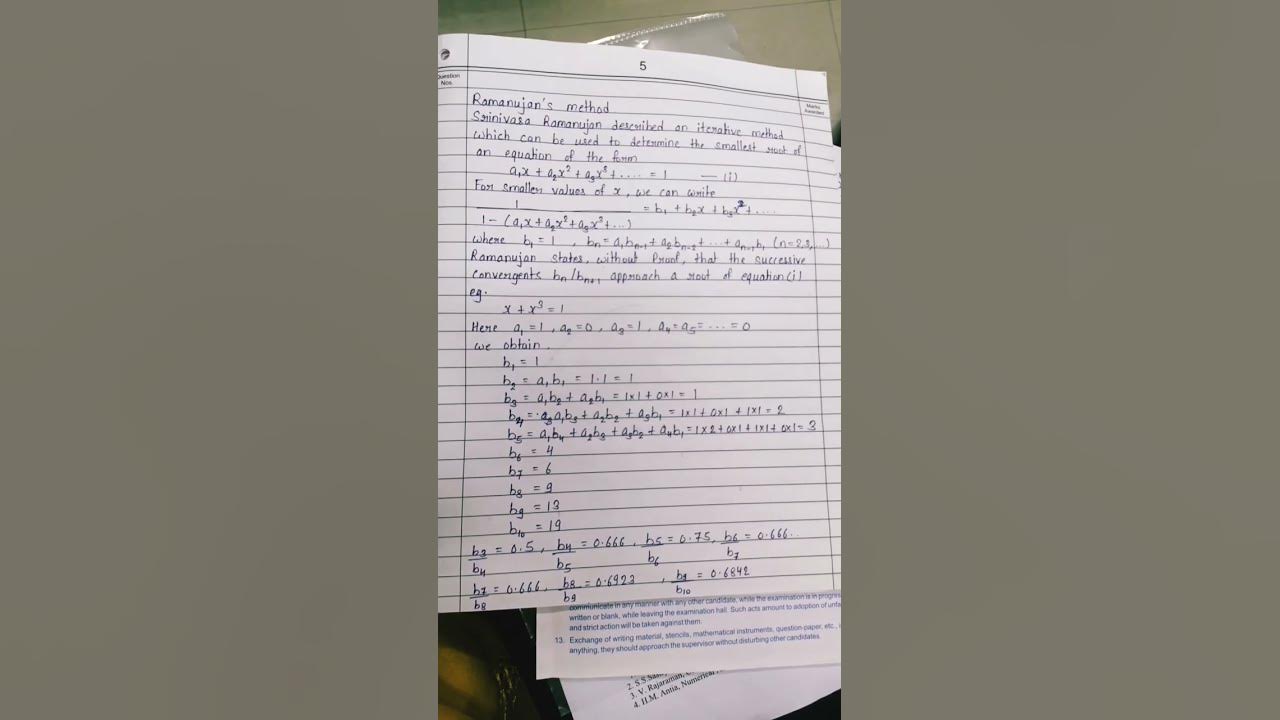 5
Question
Nos.
Marks
Awarded
Ramanujan's method
Srinivasa Ramanujan described an iterative method
which can be used to determine the smallest root of
an equation of the form
a₁x + a₂x² + a₃x³ + .... = 1 — (i)
For smaller values of x, we can write
1
———————————— = b₁ + b₂x + b₃x² + ....
1 - (a₁x + a₂x² + a₃x³ + ...)
where b₁ = 1 , bn = a₁bn-1 + a₂bn-2 + ... + an-1b₁ (n = 2,3,...)
Ramanujan States, without Proof, that the successive
Convergents bn/bn+1 approach a root of equation (i)
eg.
x + x³ = 1
Here a₁ = 1 , a₂ = 0 , a₃ = 1 , a₄ = a₅ = ... = 0
we obtain.
b₁ = 1
b₂ = a₁b₁ = 1·1 = 1
b₃ = a₁b₂ + a₂b₁ = 1×1 + 0×1 = 1
b₄ = a₁b₃ + a₂b₂ + a₃b₁ = 1×1 + 0×1 + 1×1 = 2
b₅ = a₁b₄ + a₂b₃ + a₃b₂ + a₄b₁ = 1×2 + 0×1 + 1×1 + 0×1 = 3
b₆ = 4
b₇ = 6
b₈ = 9
b₉ = 13
b₁₀ = 19
b₃/b₄ = 0.5 , b₄/b₅ = 0.666 , b₅/b₆ = 0.75, b₆/b₇ = 0.666..
b₇/b₈ = 0.666, b₈/b₉ = 0.6923 , b₉/b₁₀ = 0.6842
communicate in any manner with any other candidate, while the examination is in progre
written or blank, while leaving the examination hall. Such acts amount to adoption of unfa
and strict action will be taken against them.
13. Exchange of writing material, stencils, mathematical instruments, question-paper, etc.,
anything, they should approach the supervisor without disturbing other candidates.
2. S.S.
3. V. Rajaraman,
4. H.M. Antia, Numerical